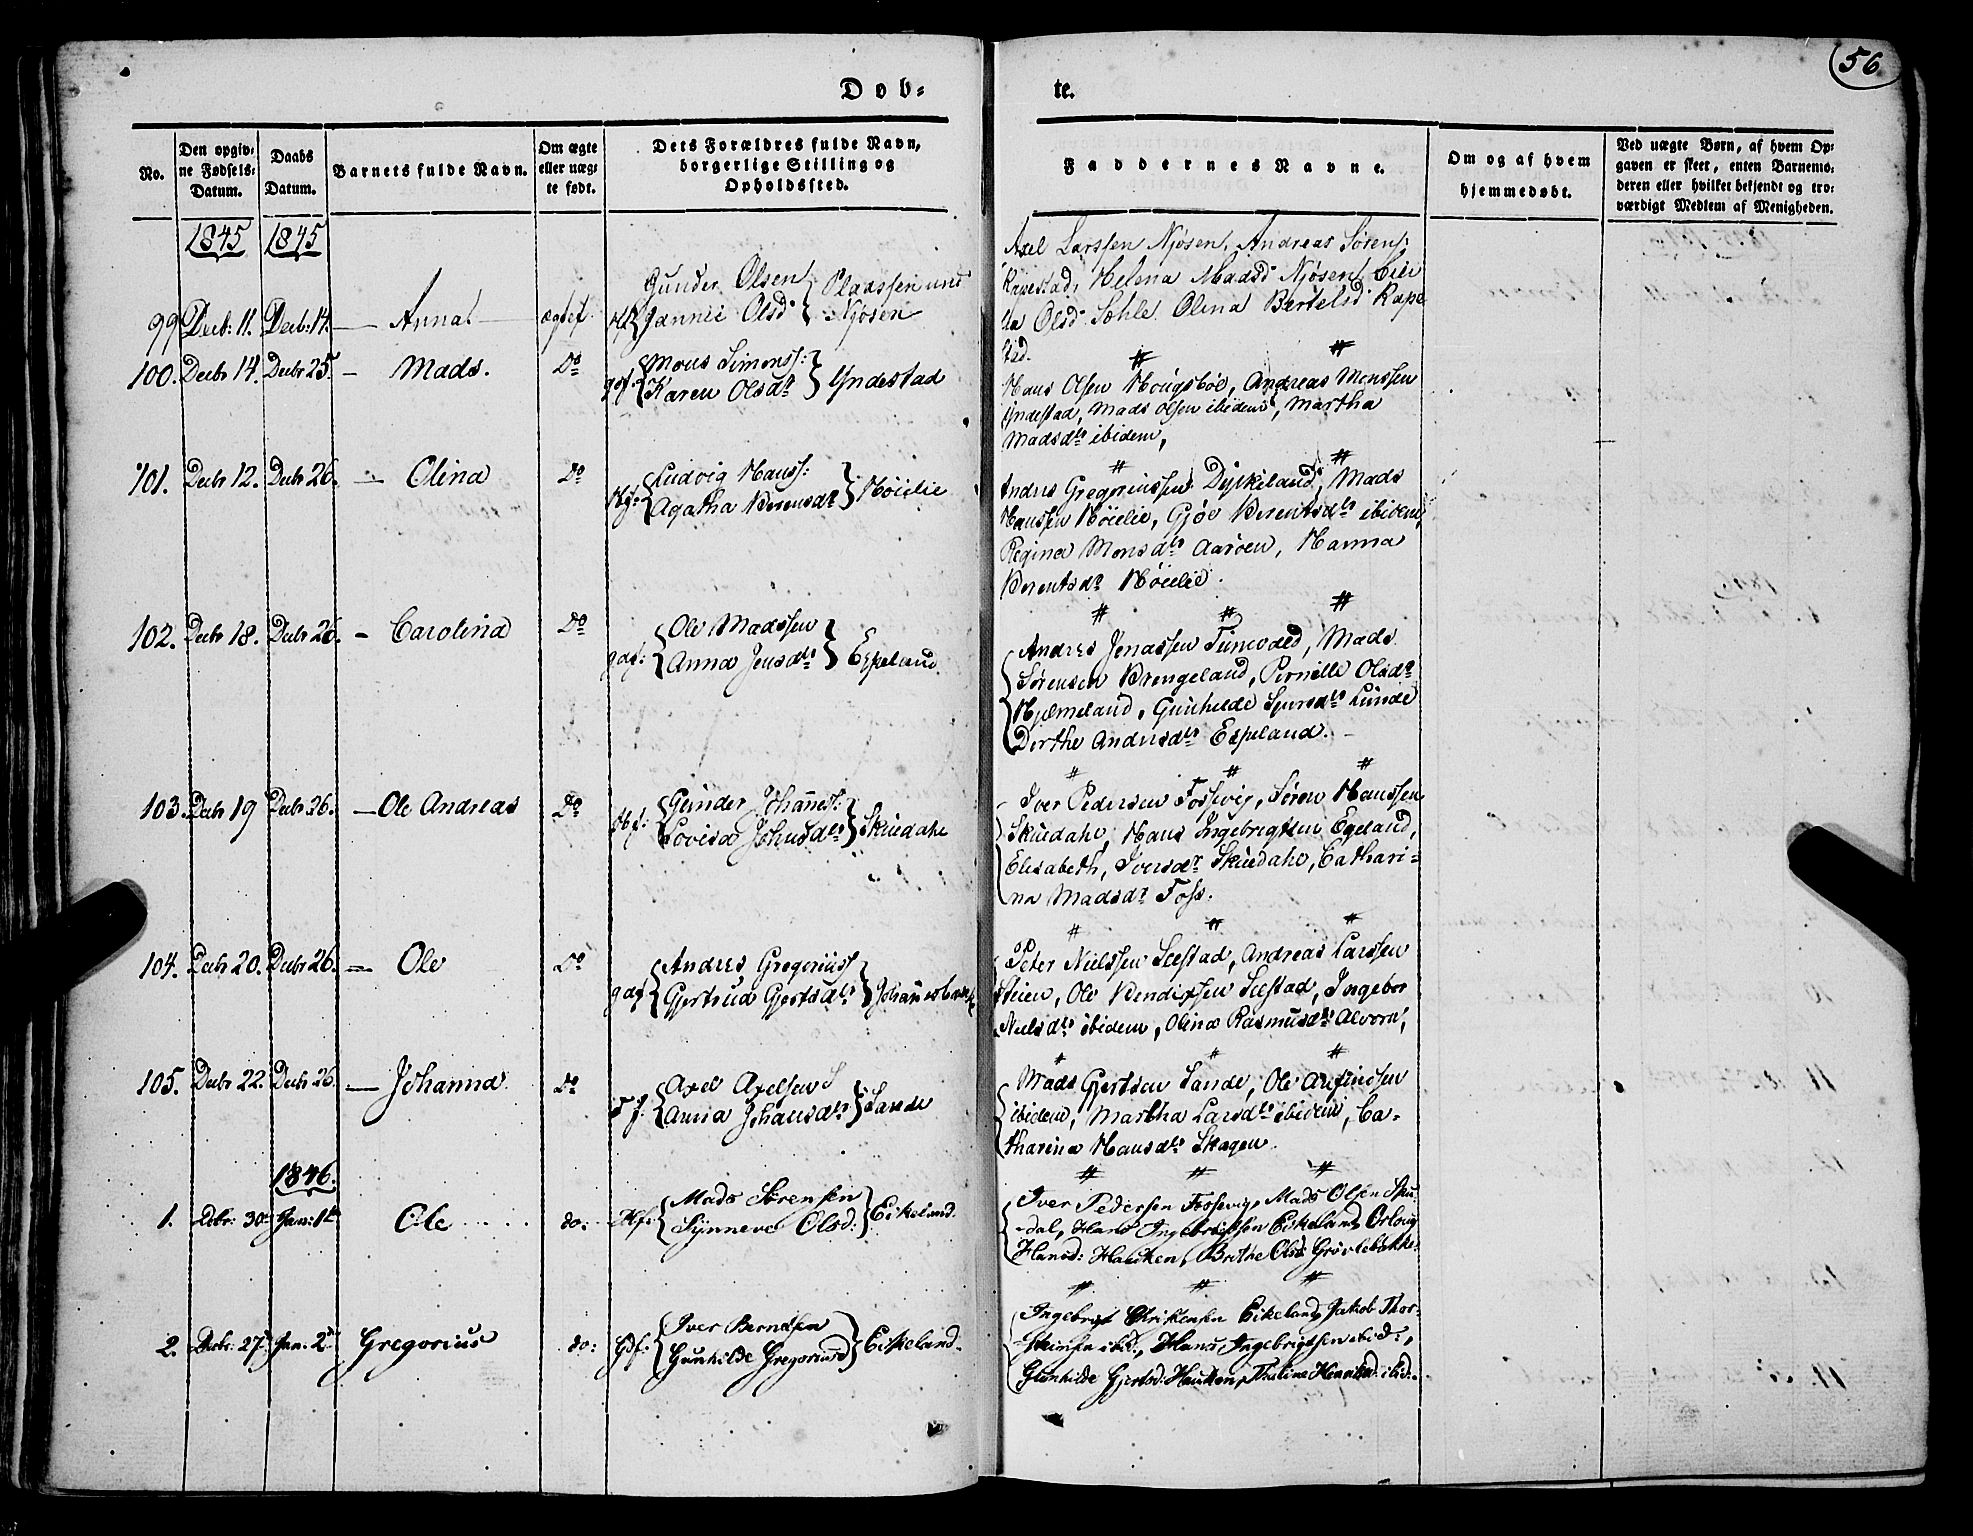 56
Dob-
te.
No.
Den opgiv-
ne Fødsels-
Datum.
Daabs
Datum.
Barnets fulde Navn.
Om ægte
eller uæg-
te født.
Dets Forældres fulde Navn,
borgerlige Stilling og
Opholdssted.
Faddernes Navne.
Om og af hvem
hjemmedøbt.
Ved uægte Børn, af hvem Op-
gaven er skeet, enten Barnemo-
deren eller hvilket bekjendt og tro-
værdigt Medlem af Menigheden.
1845 1845
99 Decb: 11. Decb: 14. — Anna.
Gunder Olsen
Jannie Olsd
Njøsen
Axel Larssen Njøsen, Andreas Sørens:
Rapestad, Helena Madsd Njøsen,
Olsd Sæhle Olina Bertelsd Rape
stad.
100. Decbr 14. Decbr 25. — Mads. Do
Mons Simonss:
Karen Olsdtr
Yndestad
Hans Olsen Hougsbøe, Andreas Monssen
Yndestad, Mads Olsen ibidem, Martha
Madsdtr ibidem,
101. Decbr 12. Decbr 26. — Olina Do
Ludvig Hanss:
Agatha Berensdtr
Høielie
Andres Gregoriussen Dyrkeland, Mads
Hanssen Høielie, Gjøe Berentsdtr ibidem,
Regina Monsdtr Aarøen, Hanna
Berentsdtr Høielie.
102. Decbr 18. Decbr 26. — Carolina Do
gdf: Ole Madssen
Anna Jensdtr
Espeland.
Andres Jonassen Timvold, Mads
Sørensen Brengeland, Pernille Olsdtr
Hjelmeland, Gunhilde Lunde
Dorthe Andersdtr Espeland. —
103. Decbr 19 Decbr 26. — Ole Andreas Do
Gunder Johannes:
Lovisa Johnsdtr
Skuedahl
Iver Pedersen Fossevig, Søren Hanssen
Skuedahl, Hans Ingebrigtsen Egeland,
Elisabeth, Iversdtr Skuedahl, Cathari-
na Madsdtr Foss.
104. Decbr 20. Decbr 26. — Ole Do
gdf Andres Gregoriuss
Gjertrud Gjertsdtr
Peter Nielssen Seestad, Andreas Larssen
Steien, Ole Bendixsen Seestad, Ingebor
Nielsdtr ibidem, Olina Rasmusdtr Alvora,
105. Decbr 22. Decbr 26. — Johanna. Do
Axel Axelsen
Anna Johansdtr
Sande
Mads Gjertsen Sande, Ole Arfindsen
ibidem, Martha Larsdtr ibidem, Ca-
tharina Hansdtr Skagen.
1846.
1. Decbr: 30te Jan: 1te Ole do:
Hf: Mads Sørensen
Synneve Olsd:
Eikeland.
Iver Pedersen Fossevig, Mads Olsen Sku-
dal, Hans Ingebrigtsen Eikeland,
Hansd: Hauken, Brithe Olsd Grøvlebakke.
2. Decbr: 27de Jan: 2den Gregorius do:
Gdf: Iver Berndsen
Gunhilde Gregoriusd
Eikeland.
Ingebrigt Christensen Eikeland, Jakob Thor-
steinsen ibid:, Hans Ingebrigtsen ibid:,
Gunhilde Gjertsd: Hauken, Thaline Henriksd: ibid:.